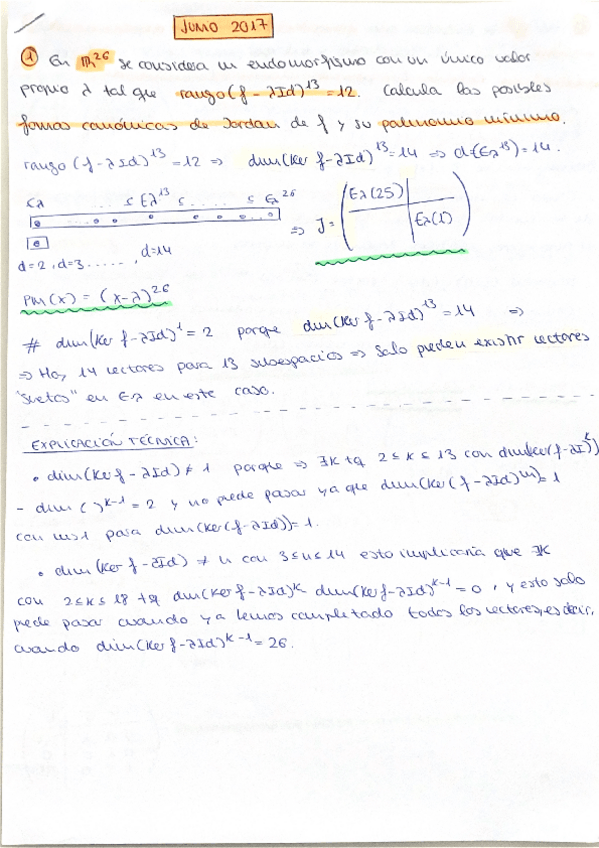 JUNIO 2017
① En ℝ²⁶ se considera un endomorfismo con un único valor
propio λ tal que rango(f - λId)¹³ = 12. Calcula las posibles
formas canónicas de Jordan de f y su polinomio mínimo.
rango (f - λId)¹³ = 12 ⇒ dim(Ker f - λId)¹³ = 14 ⇒ d(Eλ¹³) = 14.
Eλ ... ⊆ Eλ¹³ ⊆ .... ⊆ Eλ²⁶
⇒ J = ( Eλ(25) Eλ(1) )
d=2, d=3 ....., d=14
PM(x) = (x-λ)²⁶
# dim(Ker f - λId)¹ = 2 porque dim(Ker f - λId)¹³ = 14 ⇒
⇒ Hay 14 vectores para 13 subespacios ⇒ Solo pueden existir vectores
"sueltos" en Eλ en este caso.
EXPLICACIÓN TÉCNICA:
• dim(Ker f - λId) ≠ 1 porque ⇒ ∃K tq 2 ≤ K ≤ 13 con dim(Ker(f-λI)ᵏ)
- dim ( )ᵏ⁻¹ = 2 y no puede pasar ya que dim(Ker(f-λId)ᵐ) = 1
con m≥1 para dim(Ker(f-λId)) = 1.
• dim (Ker f - λId) ≠ n con 3≤n≤14 esto implicaría que ∃K
con 2≤K≤18 tq dim(Ker f-λId)ᵏ - dim(Ker f-λId)ᵏ⁻¹ = 0, y esto solo
puede pasar cuando ya hemos completado todos los vectores, es decir,
cuando dim(Ker f-λId)ᵏ⁻¹ = 26.